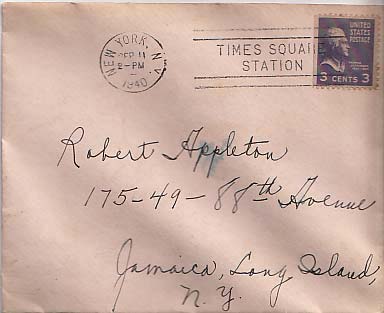 NEW YORK, N.Y.
SEP 11
2-PM
1940
TIMES SQUARE
STATION
UNITED
STATES
POSTAGE
3 CENTS 3
Robert Appleton
175-49-88th Avenue
Jamaica, Long Island,
N.Y.